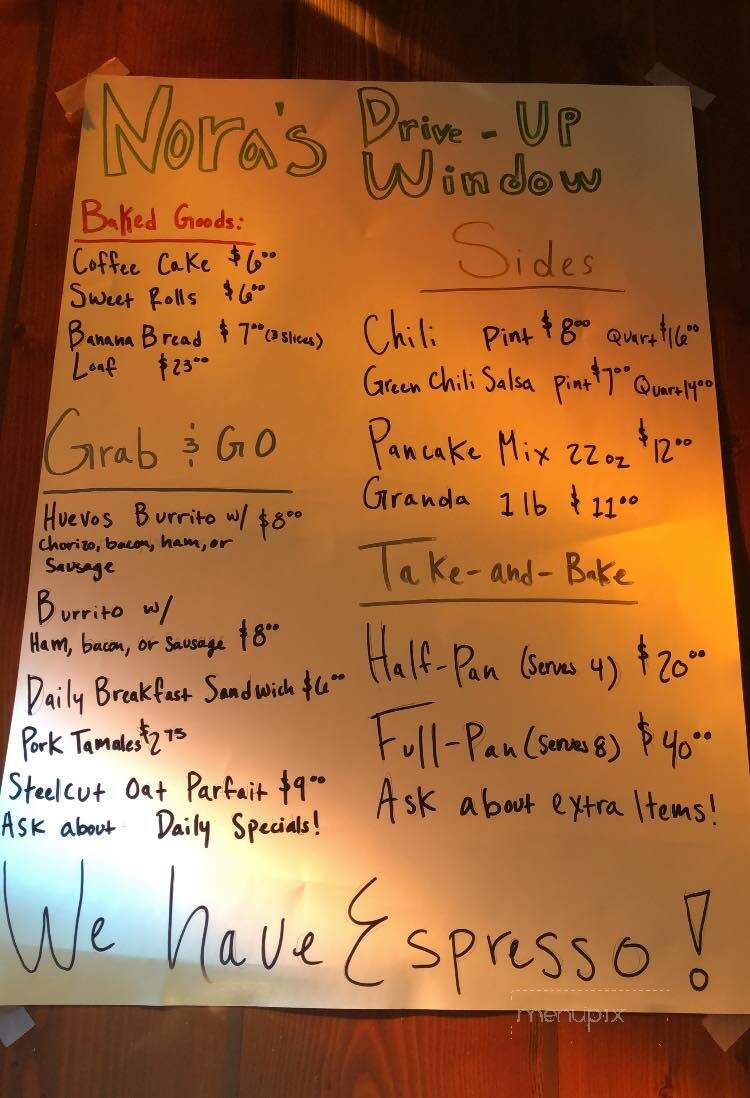 Nora's Drive-Up
Window
Baked Goods:
Coffee Cake $6.00
Sweet Rolls $6.00
Banana Bread $7.00 (3 slices)
Loaf $23.00
Grab & GO
Huevos Burrito w/ $8.00
Chorizo, bacon, ham, or
Sausage
Burrito w/
Ham, bacon, or Sausage $8.00
Daily Breakfast Sandwich $6.00
Pork Tamales $2.75
Steelcut Oat Parfait $9.00
Ask about Daily Specials!
Sides
Chili Pint $8.00 Quart $16.00
Green Chili Salsa Pint $7.00 Quart 14.00
Pancake Mix 22oz $12.00
Granola 1 lb $11.00
Take-and-Bake
Half-Pan (Serves 4) $20.00
Full-Pan (Serves 8) $40.00
Ask about extra Items!
We have Espresso!
menupix